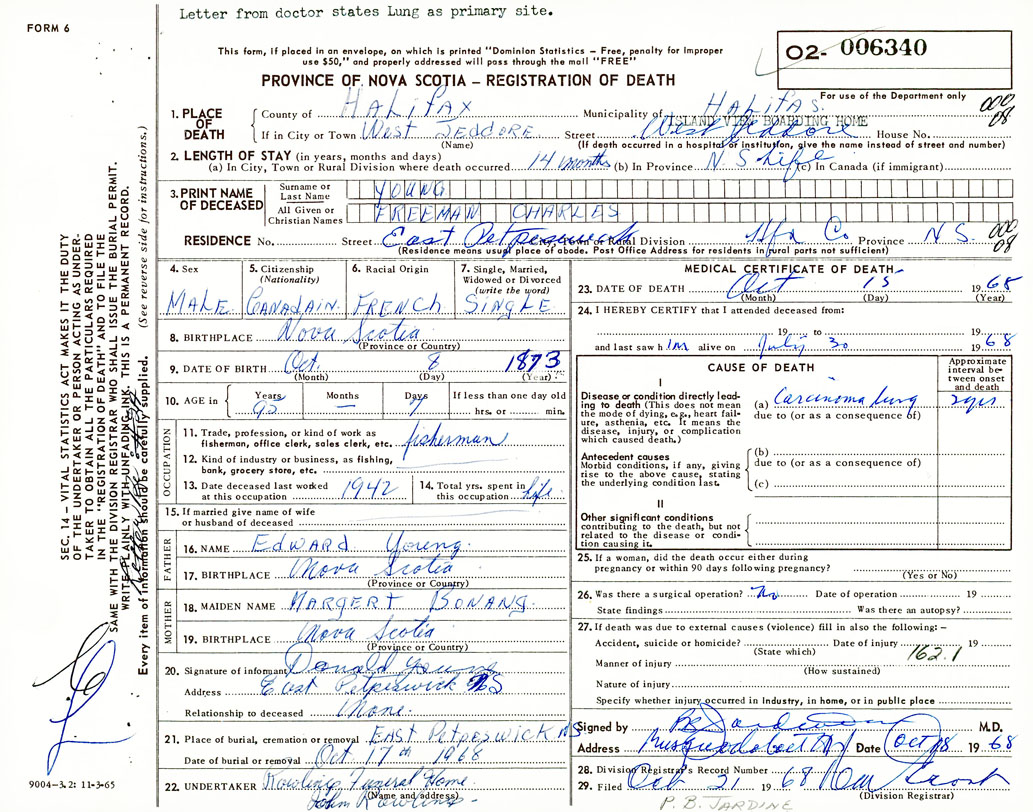 Letter from doctor states Lung as primary site.
FORM 6
This form, if placed in an envelope, on which is printed "Dominion Statistics – Free, penalty for improper
use $50," and properly addressed will pass through the mail "FREE"
O2- 006340
PROVINCE OF NOVA SCOTIA – REGISTRATION OF DEATH
For use of the Department only
1. PLACE OF DEATH
County of HALIFAX Municipality of HALIFAS.
000
08
ISLAND VIEW BOARDING HOME
If in City or Town West JEDDORE Street West Jeddore House No.
(Name) (If death occurred in a hospital or institution, give the name instead of street and number)
2. LENGTH OF STAY (in years, months and days)
(a) In City, Town or Rural Division where death occurred 14 months (b) In Province N.S life (c) In Canada (if immigrant)
3. PRINT NAME OF DECEASED
Surname or Last Name YOUNG
All Given or Christian Names FREEMAN CHARLES
RESIDENCE No. Street East Petpeswick City, Town or Rural Division Hfx Co Province N S.
000
08
(Residence means usual place of abode. Post Office Address for residents in rural parts not sufficient)
4. Sex
MALE
5. Citizenship
(Nationality)
CANADAIN.
6. Racial Origin
FRENCH
7. Single, Married,
Widowed or Divorced
(write the word)
SINGLE
8. BIRTHPLACE Nova Scotia
(Province or Country)
9. DATE OF BIRTH Oct. 8 1873
(Month) (Day) (Year)
10. AGE in
Years Months Days If less than one day old
95 – 7 hrs. or min.
OCCUPATION
11. Trade, profession, or kind of work as
fisherman, office clerk, sales clerk, etc. fisherman
12. Kind of industry or business, as fishing,
bank, grocery store, etc.
13. Date deceased last worked
at this occupation 1942
14. Total yrs. spent in
this occupation life
15. If married give name of wife
or husband of deceased
FATHER
16. NAME Edward Young.
17. BIRTHPLACE Nova Scotia
(Province or Country)
MOTHER
18. MAIDEN NAME MARGERT BONANG.
19. BIRTHPLACE Nova Scotia
(Province or Country)
20. Signature of informant Donald Young
Address East Petpeswick NS
Relationship to deceased None.
21. Place of burial, cremation or removal EAST PETPESWICK NS
Date of burial or removal Oct 17th 1968
22. UNDERTAKER Rowlings Funeral Home.
(Name and address)
John Rowlings
MEDICAL CERTIFICATE OF DEATH
23. DATE OF DEATH Oct 15 1968
(Month) (Day) (Year)
24. I HEREBY CERTIFY that I attended deceased from:
19 to 19
and last saw him alive on July 30 1968
CAUSE OF DEATH
Approximate interval between onset and death
I
Disease or condition directly leading to death (This does not mean the mode of dying, e.g., heart failure, asthenia, etc. It means the disease, injury, or complication which caused death.)
(a) Carcinoma lung 2 yrs
due to (or as a consequence of)
Antecedent causes
Morbid conditions, if any, giving rise to the above cause, stating the underlying condition last.
(b)
due to (or as a consequence of)
(c)
II
Other significant conditions
contributing to the death, but not related to the disease or condition causing it.
25. If a woman, did the death occur either during
pregnancy or within 90 days following pregnancy?
(Yes or No)
26. Was there a surgical operation? No Date of operation 19
State findings Was there an autopsy?
27. If death was due to external causes (violence) fill in also the following: –
Accident, suicide or homicide? Date of injury 19
(State which)
162.1
Manner of injury
(How sustained)
Nature of injury
Specify whether injury occurred in industry, in home, or in public place
Signed by PB Jardine M.D.
Address Musquodoboit Date Oct 18 1968
28. Division Registrar's Record Number
29. Filed Oct 21 1968
(Division Registrar)
P. B. JARDINE
SEC. 14 – VITAL STATISTICS ACT MAKES IT THE DUTY
OF THE UNDERTAKER OR PERSON ACTING AS UNDERTAKER TO OBTAIN ALL THE PARTICULARS REQUIRED
IN THE "REGISTRATION OF DEATH" AND TO FILE THE
SAME WITH THE DIVISION REGISTRAR WHO SHALL ISSUE THE BURIAL PERMIT.
WRITE PLAINLY WITH UNFADING INK. THIS IS A PERMANENT RECORD.
Every item of information should be carefully supplied. (See reverse side for instructions.)
9004-3.2: 11-3-65